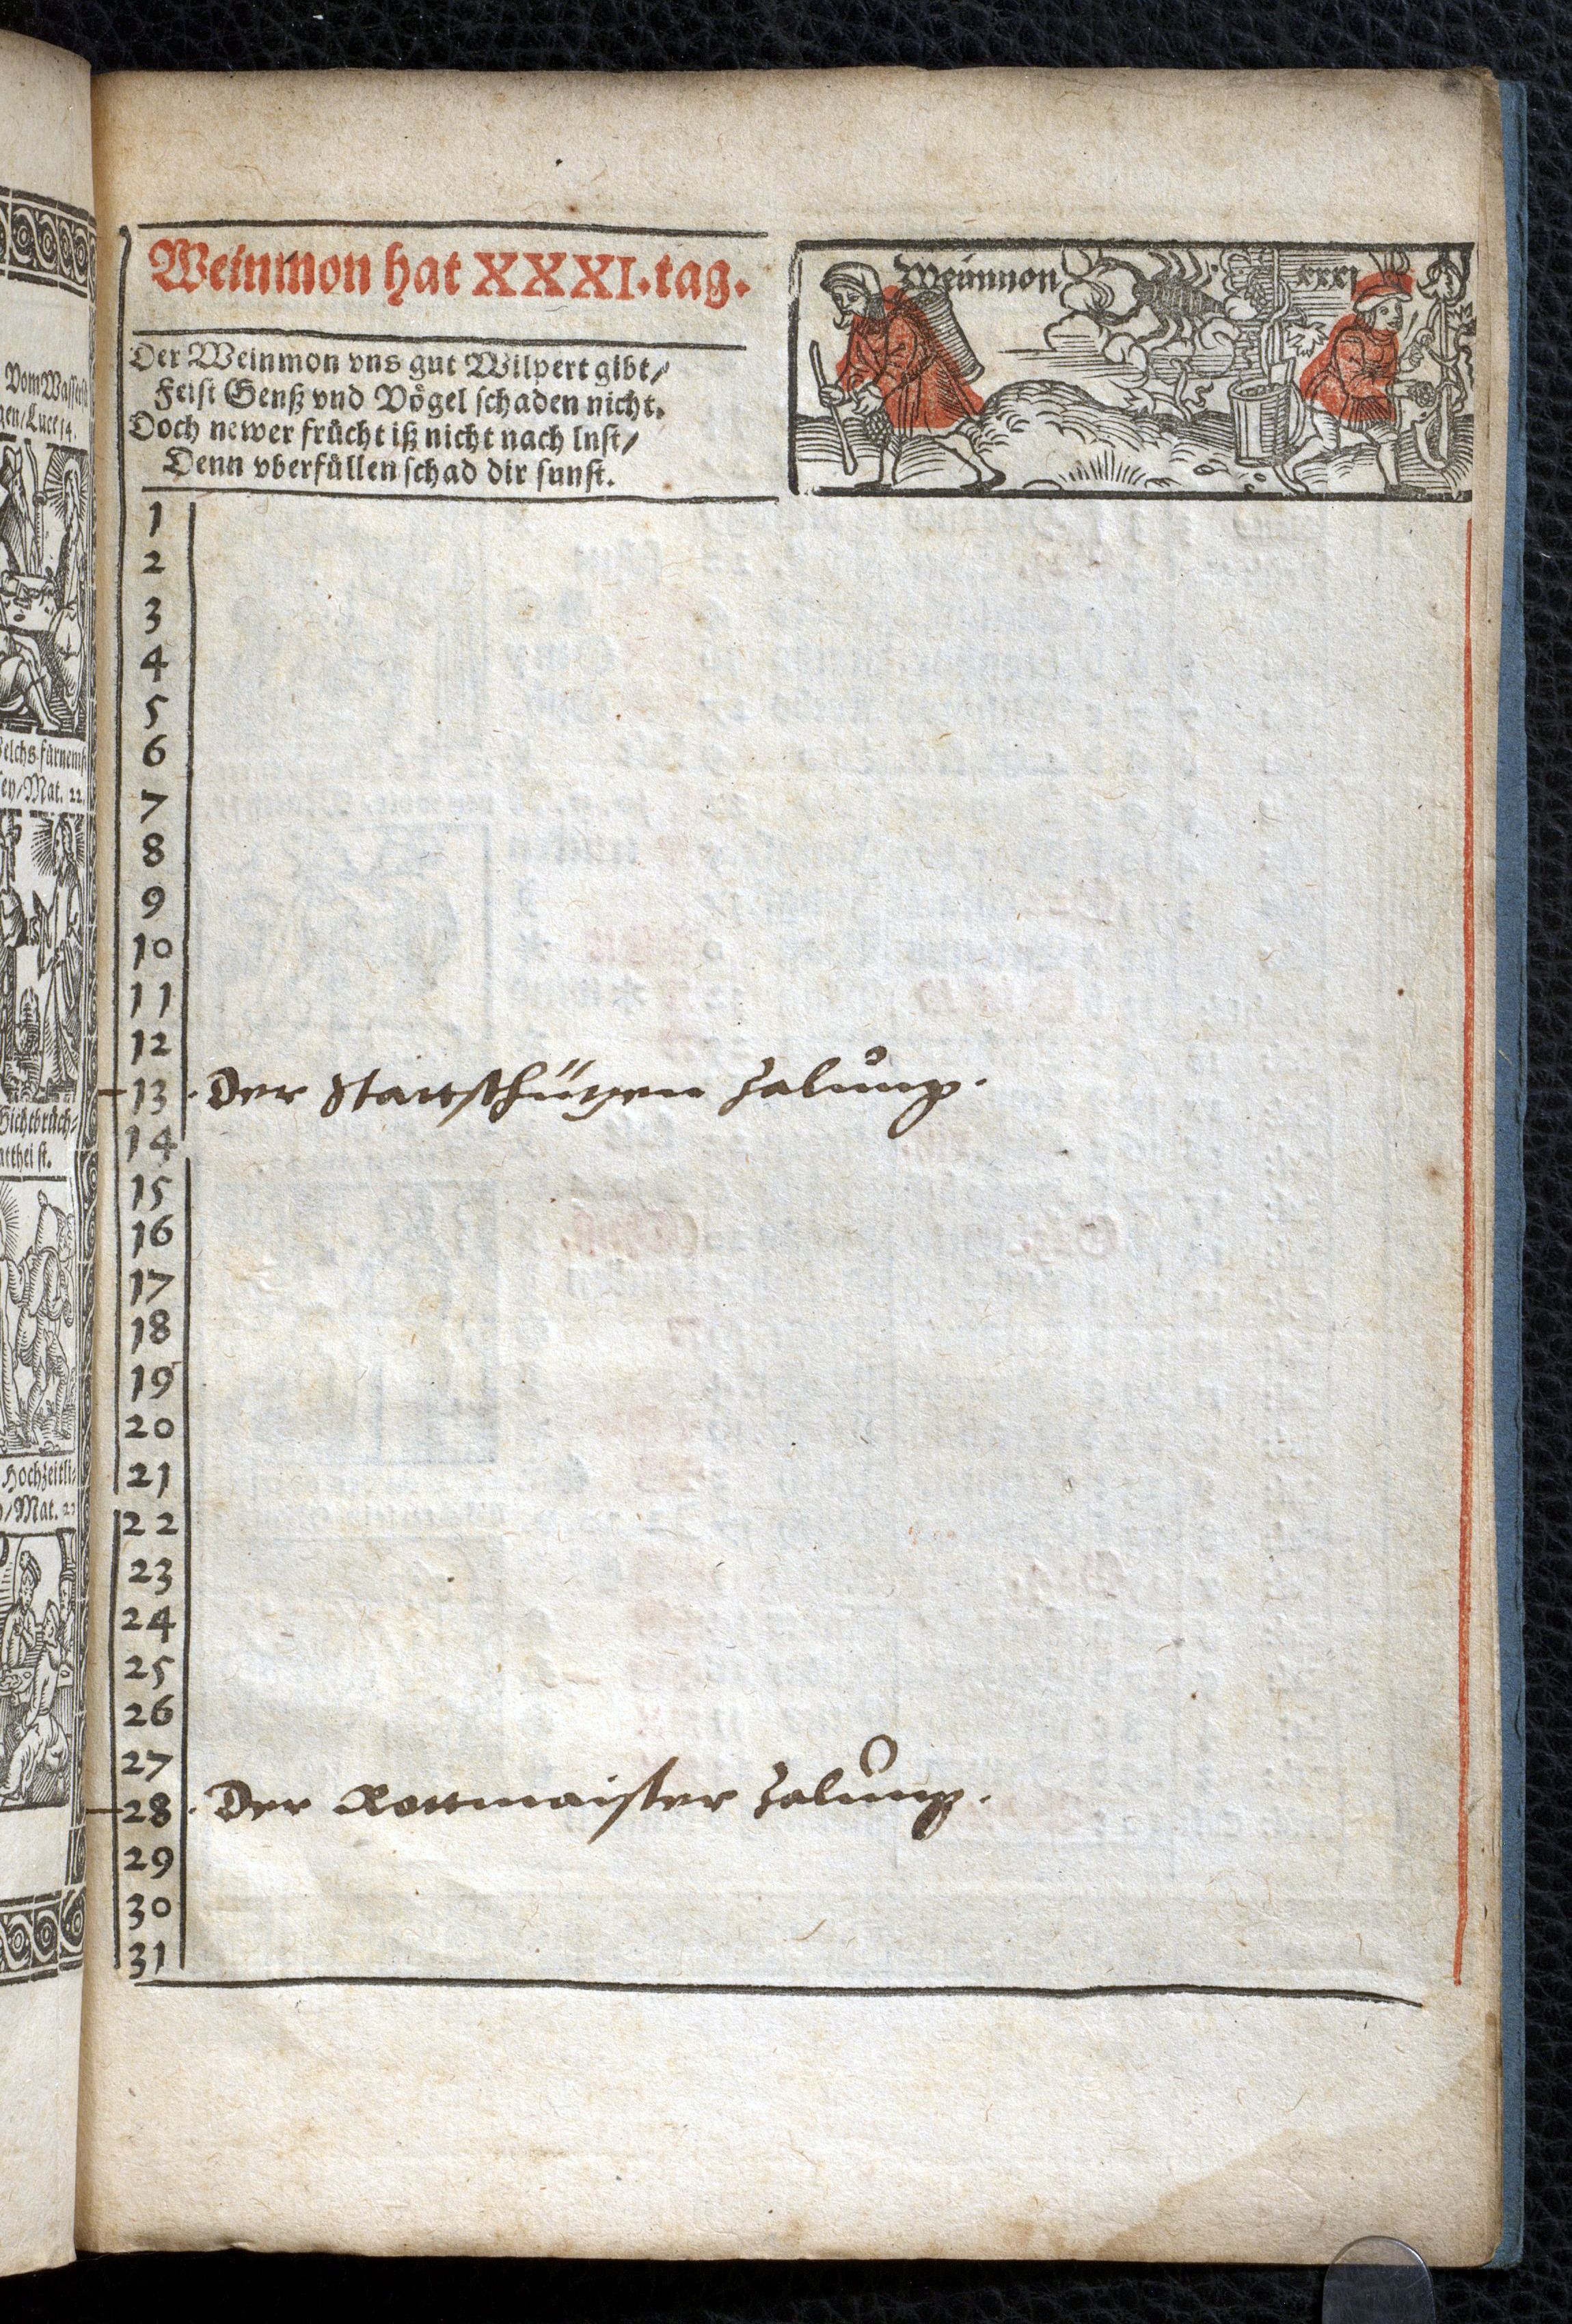 Vom Wasser
gen/Luce 14.
elchs fürnemst
sey/Mat. 22.
Gichtbrüch-
atthei
Hochzeitli-
/Mat. 22
Weinmon hat XXXI. tag.
Der Weinmon vns gut Wilpert gibt/
Feist Genß vnd Vögel schaden nicht.
Doch newer frücht iß nicht nach lust/
Denn vberfüllen schad dir sunst.
Weinmon xxxi
1
2
3
4
5
6
7
8
9
10
11
12
13 . Der Stattschützen Zalung.
14
15
16
17
18
19
20
21
22
23
24
25
26
27
28 . Der Rottmaister Zalung.
29
30
31